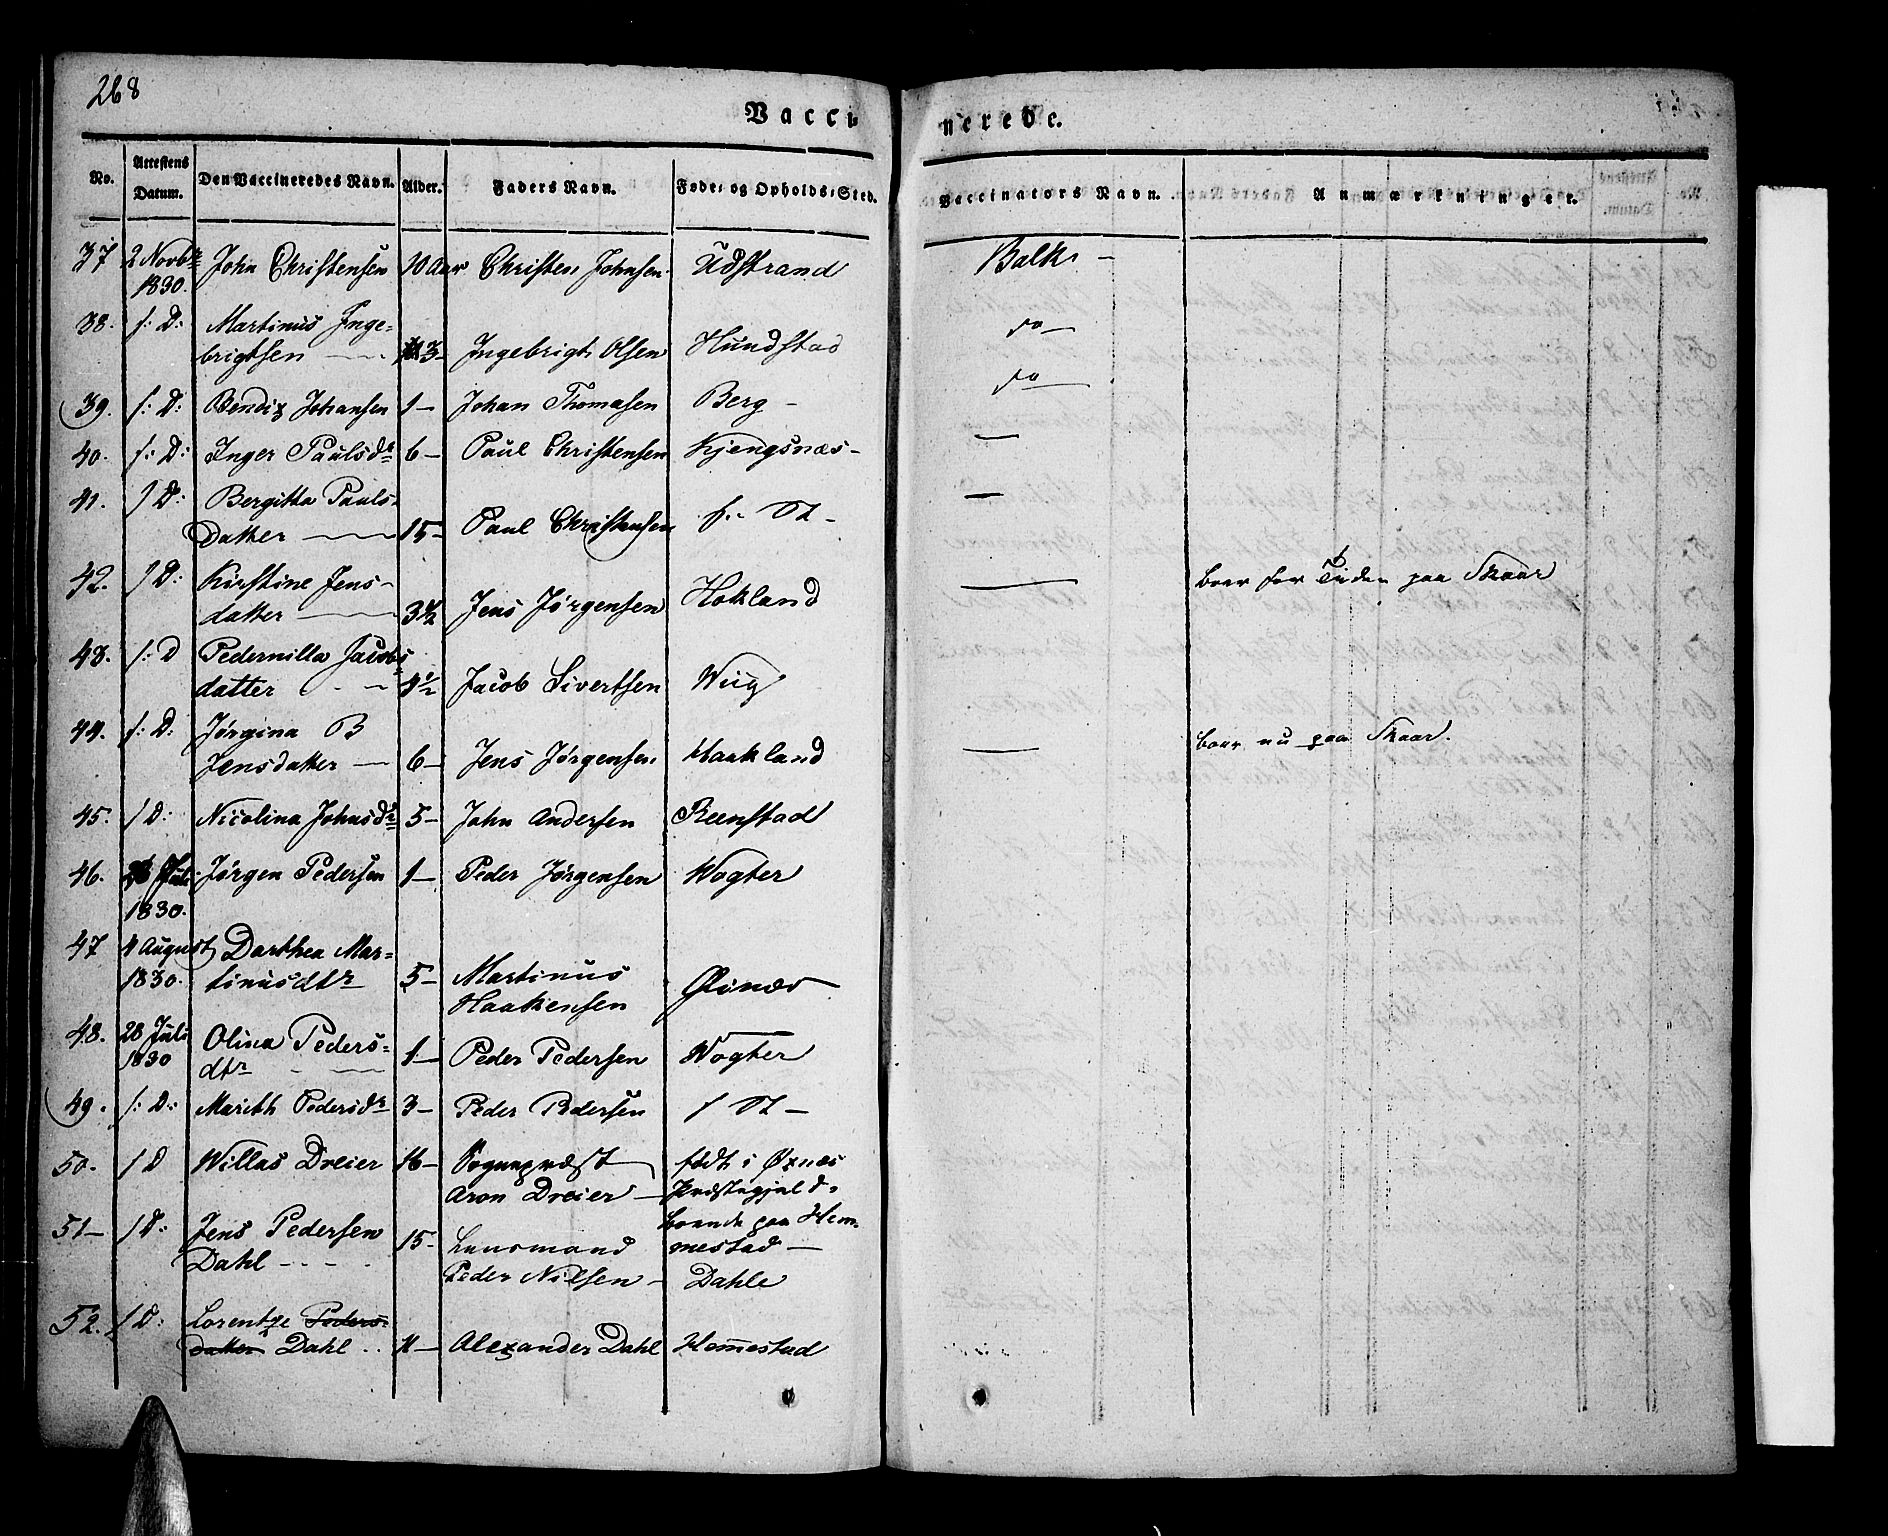 268
Vaccinerede.
No. Attestens Datum. Den Vaccineredes Navn. Alder. Faders Navn. Føde: og Opholds: Sted. Vaccinators Navn. Anmærkninger.
37 2 Novbr 1830. John Christensen 10 Aar Christen Johnsen Udstrand Balke -
38. f: D: Martinus Inge-
brigtsen 3- Ingebrigt Olsen Hundstad do -
39. f: D: Bendix Johansen 1- Johan Thomasen Berg - do
40. f: D: Inger Paulsdr 6- Paul Christensen Kjengsnæs- —
41. f D: Bergitta Pauls-
Datter 15- Paul Christensen f.- St - —
42. f D: Kirstine Jens-
datter 3½ Jens Jørgensen Hokland — boer for Tiden paa Skaar
43. f: D Pedernilla Jacobs
datter 4½ Jacob Sivertsen Wiig
44. f: D: Jørgina B
Jensdatter - 6- Jens Jørgensen Haakland — boer nu paa Skaar.
45. f D: Nicolina Johnsdr 5- John Andersen Reenstad
46. Juli 1830. Jørgen Pedersen 1- Peder Jørgensen Wogter
47 4 August 1830. Dorthea Mar-
tinusdtr 5- Martinus
Haakensen Øinæs
48. 28 Juli 1830 Olina Peders-
dtr 1- Peder Pedersen Wogter
49. f: D: Marith Pedersdr 3- Peder Pedersen f St -
50. f D Willas Dreier 16- Sognepræst
Aron Dreier - født i Øxnes
Præstegjeld,
boende paa Hem-
mestad -
51- f D: Jens Pedersen
Dahl - - - - 15- Lensmand
Peder Nilsen - Dahle
52. f D: Lorentze Peders-
datter Dahl . . 11- Alexander Dahl Hemmestad